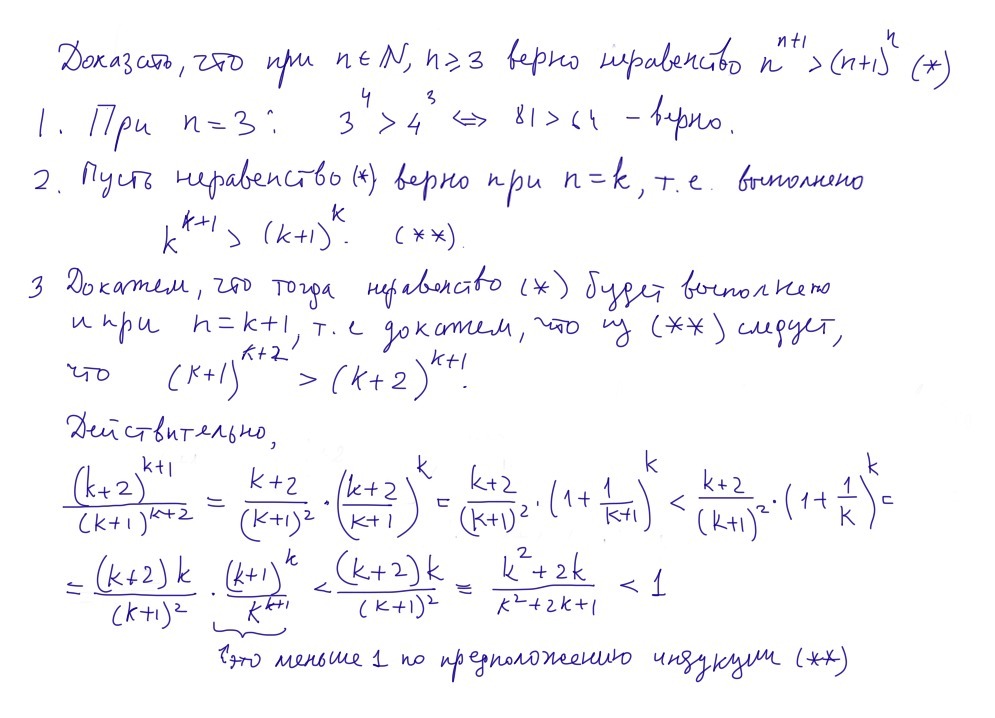 Доказать, что при n ∈ N, n ⩾ 3 верно неравенство n^{n+1} > (n+1)^n (*)
1. При n = 3: 3^4 > 4^3 ⇔ 81 > 64 – верно.
2. Пусть неравенство (*) верно при n = k, т.е. выполнено
k^{k+1} > (k+1)^k. (**).
3 Докажем, что тогда неравенство (*) будет выполнено
и при n = k+1, т.е докажем, что из (**) следует,
что (k+1)^{k+2} > (k+2)^{k+1}.
Действительно,
\frac{(k+2)^{k+1}}{(k+1)^{k+2}} = \frac{k+2}{(k+1)^2} · (\frac{k+2}{k+1})^k = \frac{k+2}{(k+1)^2} · (1 + \frac{1}{k+1})^k < \frac{k+2}{(k+1)^2} · (1 + \frac{1}{k})^k =
= \frac{(k+2)k}{(k+1)^2} · \frac{(k+1)^k}{k^{k+1}} < \frac{(k+2)k}{(k+1)^2} = \frac{k^2+2k}{k^2+2k+1} < 1
это меньше 1 по предположению индукции (**)